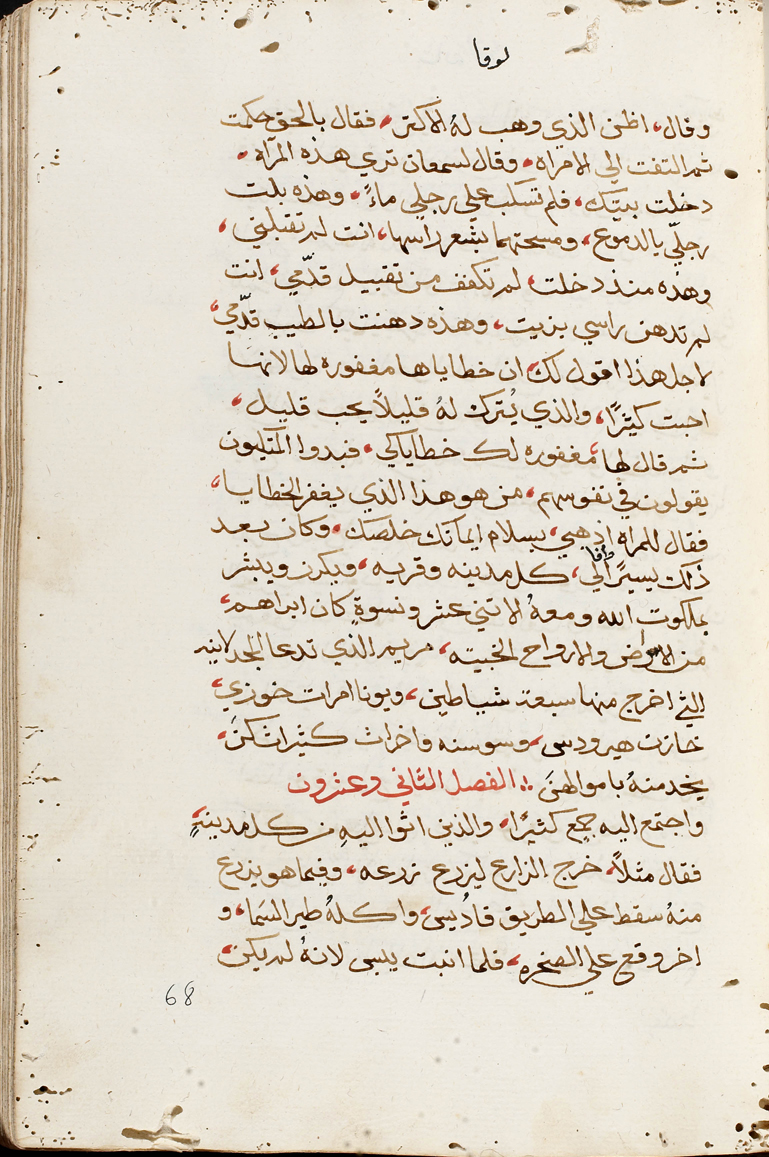 لوقا
وقال، اظن الذي وهب لهُ الاكتر، فقال بالحق حكمت
ثم التفت الي الامراه، وقال لسمعان تري هذه المرآه،
دخلت بيتك، فلم تسكب علي رجلي ماءً، وهذه بلت
رجليّ بالدموع، ومسحتهما بشعر راسها، انت لم تقبلني،
وهذه منذ دخلت، لم تكفف من تقبيل قدّمي، انت
لم تدهن راسي بزيت، وهذه دهنت بالطيب قدّمي،
لاجل هذا اقول لك، ان خطاياها مغفوره لها لانها
احبت كثيرًا، والذي يُترك لهُ قليلاً يحب قليل،
ثم قال لها، مغفوره لك خطاياكي، فبدوا المتكيون
يقولون في نفوسهم، من هو هذا الذي يغفر الخطايا،
فقال للمراه اذهبي، بسلام ايمانك خلصك، وكان بعد
ذلك يسيرًا وافا الي، كل مدينه وقريه، ويكرز ويبشر
بملكوت الله ومعهُ الاتني عشر ونسوةٍ كان ابراهم،
من الامراض والارواح الخبيته، مريم الذي تدعا المجدلانيه
التي اخرج منها سبعة شياطين، ويونا امرات خوزي،
خازن هيرودس، وسوسنه واخرات كثيرات كنَ،
يخدمنهُ باموالهنَ ܀ الفصل الثاني وعشرون
واجتمع اليه جمع كثيرًا، والذين اتوا اليهِ من كل مدينةٍ،
فقال مثلاً، خرج الزارع ليزرع زرعه، وفيما هو يزرع
منهُ سقط علي الطريق فاديس، واكلهُ طير السَما، و
اخر وقع علي الصخره، فلما انبت يبس لانهُ لم يكن،
68